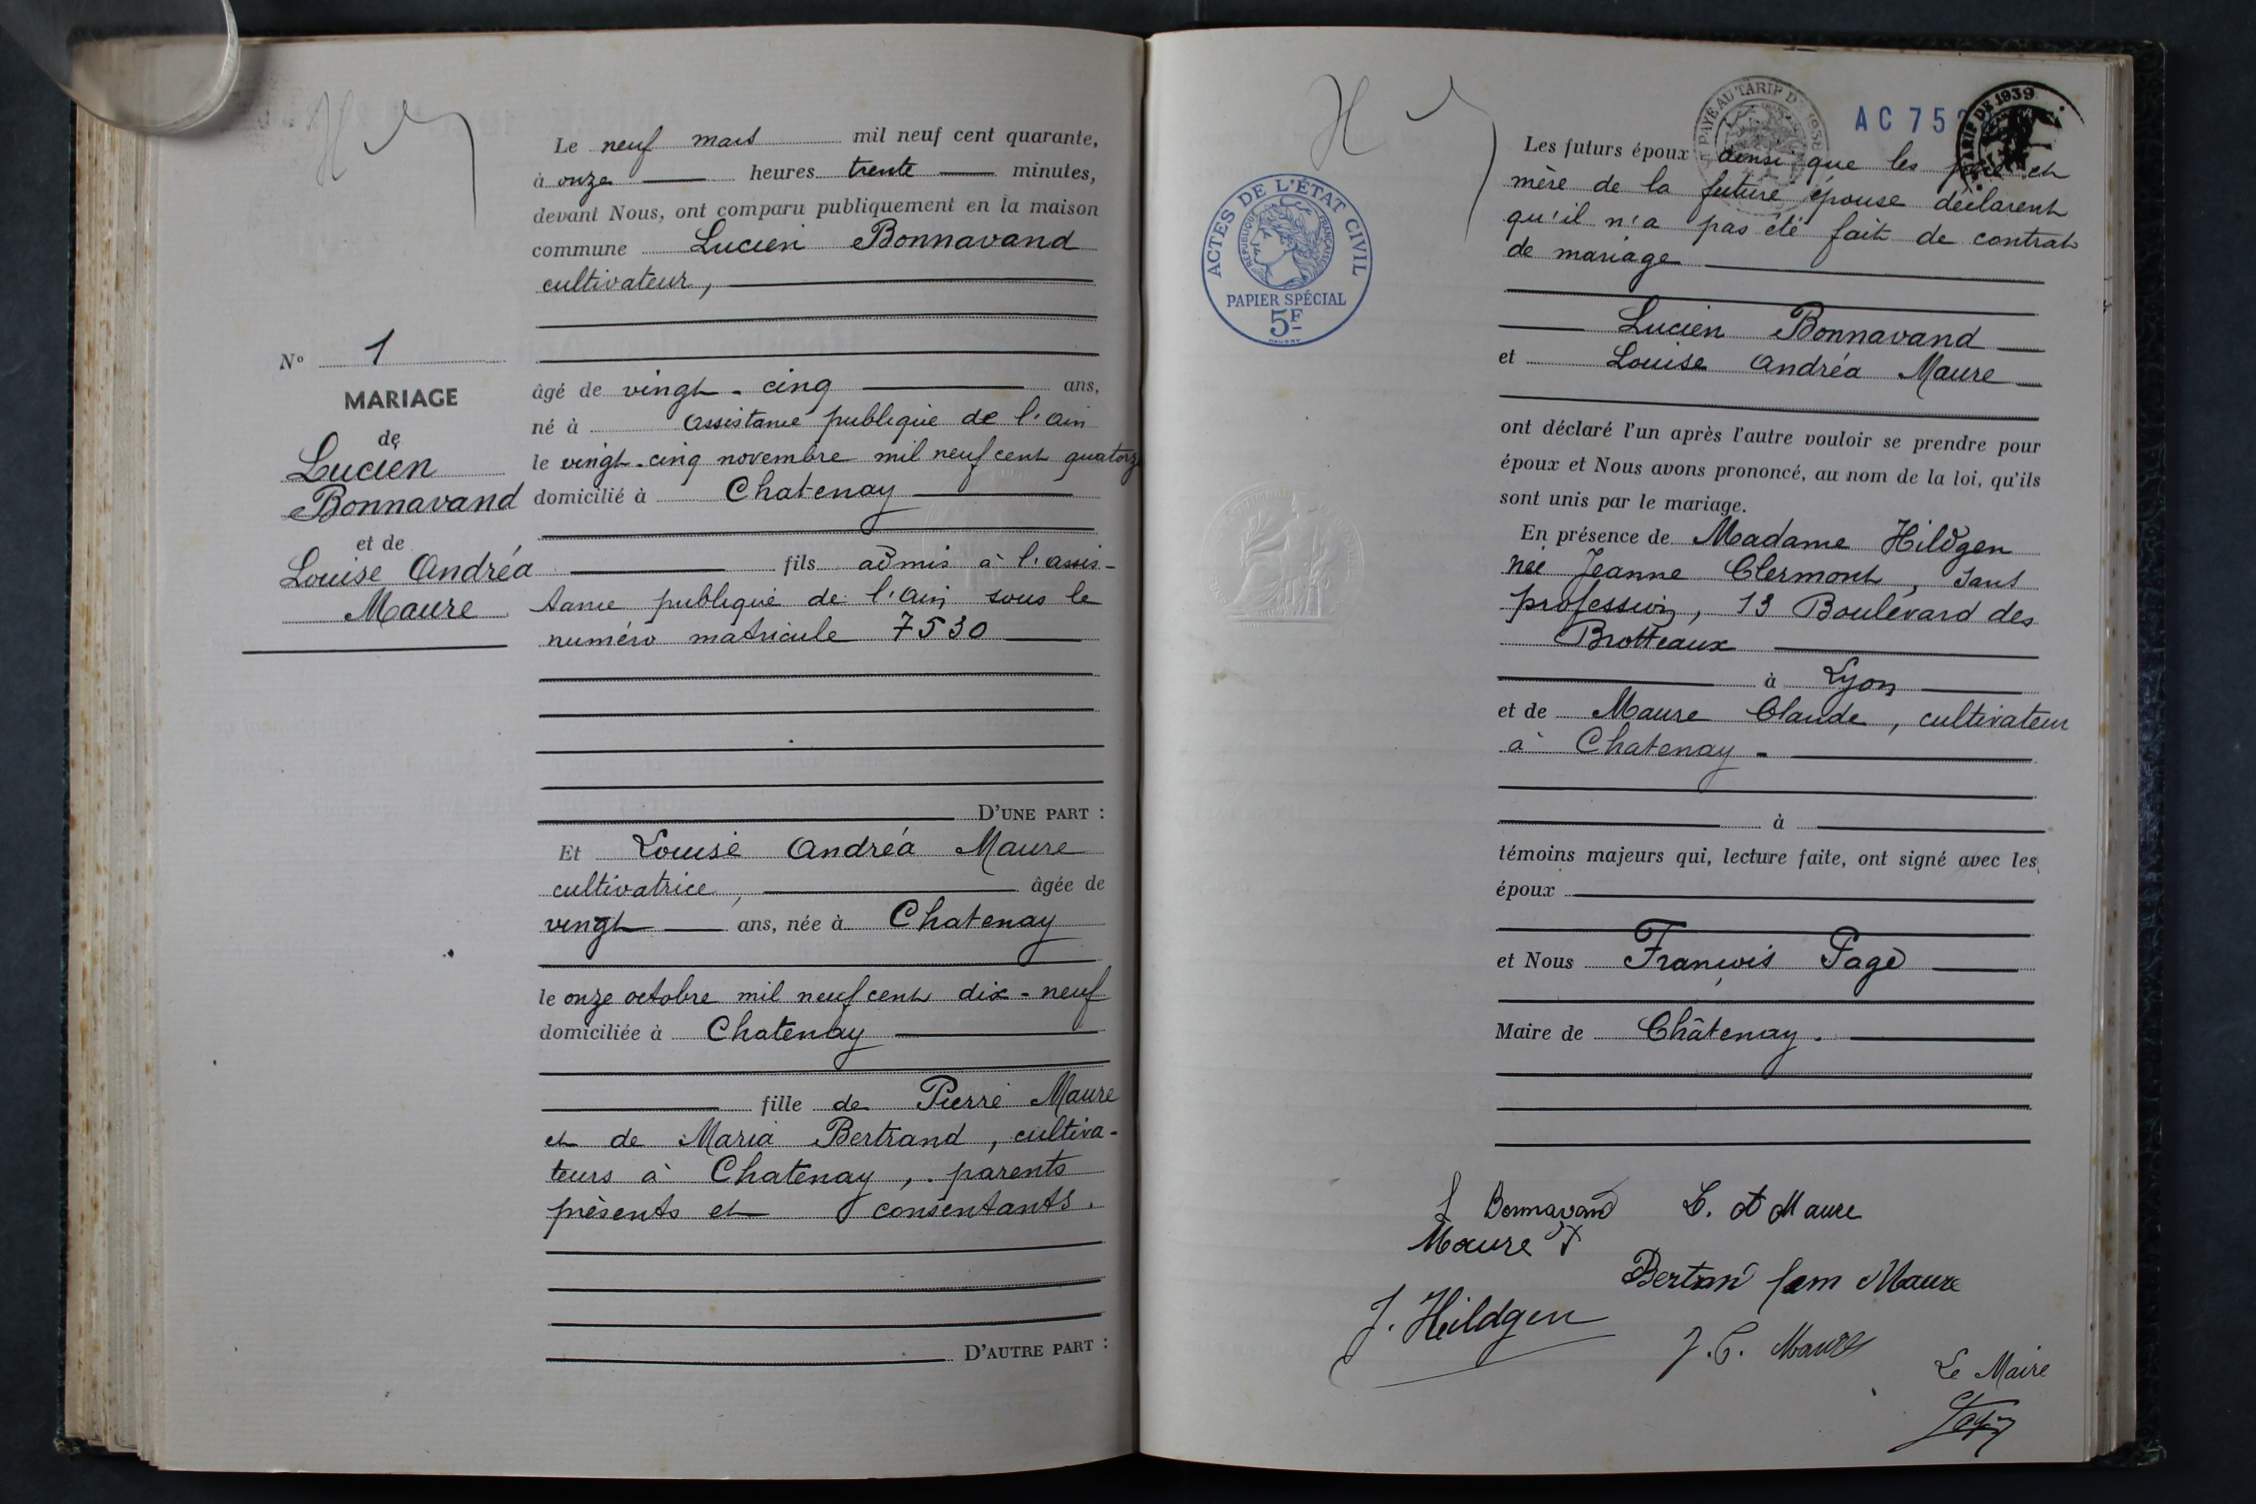 Le neuf mars mil neuf cent quarante,
à onze heures trente minutes,
devant Nous, ont comparu publiquement en la maison
commune Lucien Bonnavand
cultivateur,
N° 1
MARIAGE
de
Lucien
Bonnavand
et de
Louise Andréa
Maure
âgé de vingt-cinq ans,
né à Assistance publique de l'Ain
le vingt-cinq novembre mil neuf cent quatorze
domicilié à Chatenay
fils admis à l'assis-
tance publique de l'Ain sous le
numéro matricule 7530
D'UNE PART :
Et Louise Andréa Maure
cultivatrice, âgée de
vingt ans, née à Chatenay
le onze octobre mil neuf cent dix-neuf
domiciliée à Chatenay
fille de Pierre Maure
et de Maria Bertrand, cultiva-
teurs à Chatenay, parents
présents et consentants.
D'AUTRE PART :
PAYÉ AU TARIF D
AC 75
TARIF DE 1939
ACTES DE L'ÉTAT CIVIL
RÉPUBLIQUE FRANÇAISE
PAPIER SPÉCIAL
5F
Les futurs époux ainsi que les père et
mère de la future épouse déclarent
qu'il n'a pas été fait de contrat
de mariage
Lucien Bonnavand
et Louise Andréa Maure
ont déclaré l'un après l'autre vouloir se prendre pour
époux et Nous avons prononcé, au nom de la loi, qu'ils
sont unis par le mariage.
En présence de Madame Hildgen
née Jeanne Clermont, sans
profession, 13 Boulevard des
Brotteaux
à Lyon
et de Maure Claude, cultivateur
à Chatenay -
à
témoins majeurs qui, lecture faite, ont signé avec les
époux
et Nous François Page
Maire de Châtenay.
L Bonnavand L. A Maure
Maure
Bertran fem Maure
J. Hildgen
J. C. Maure
Le Maire